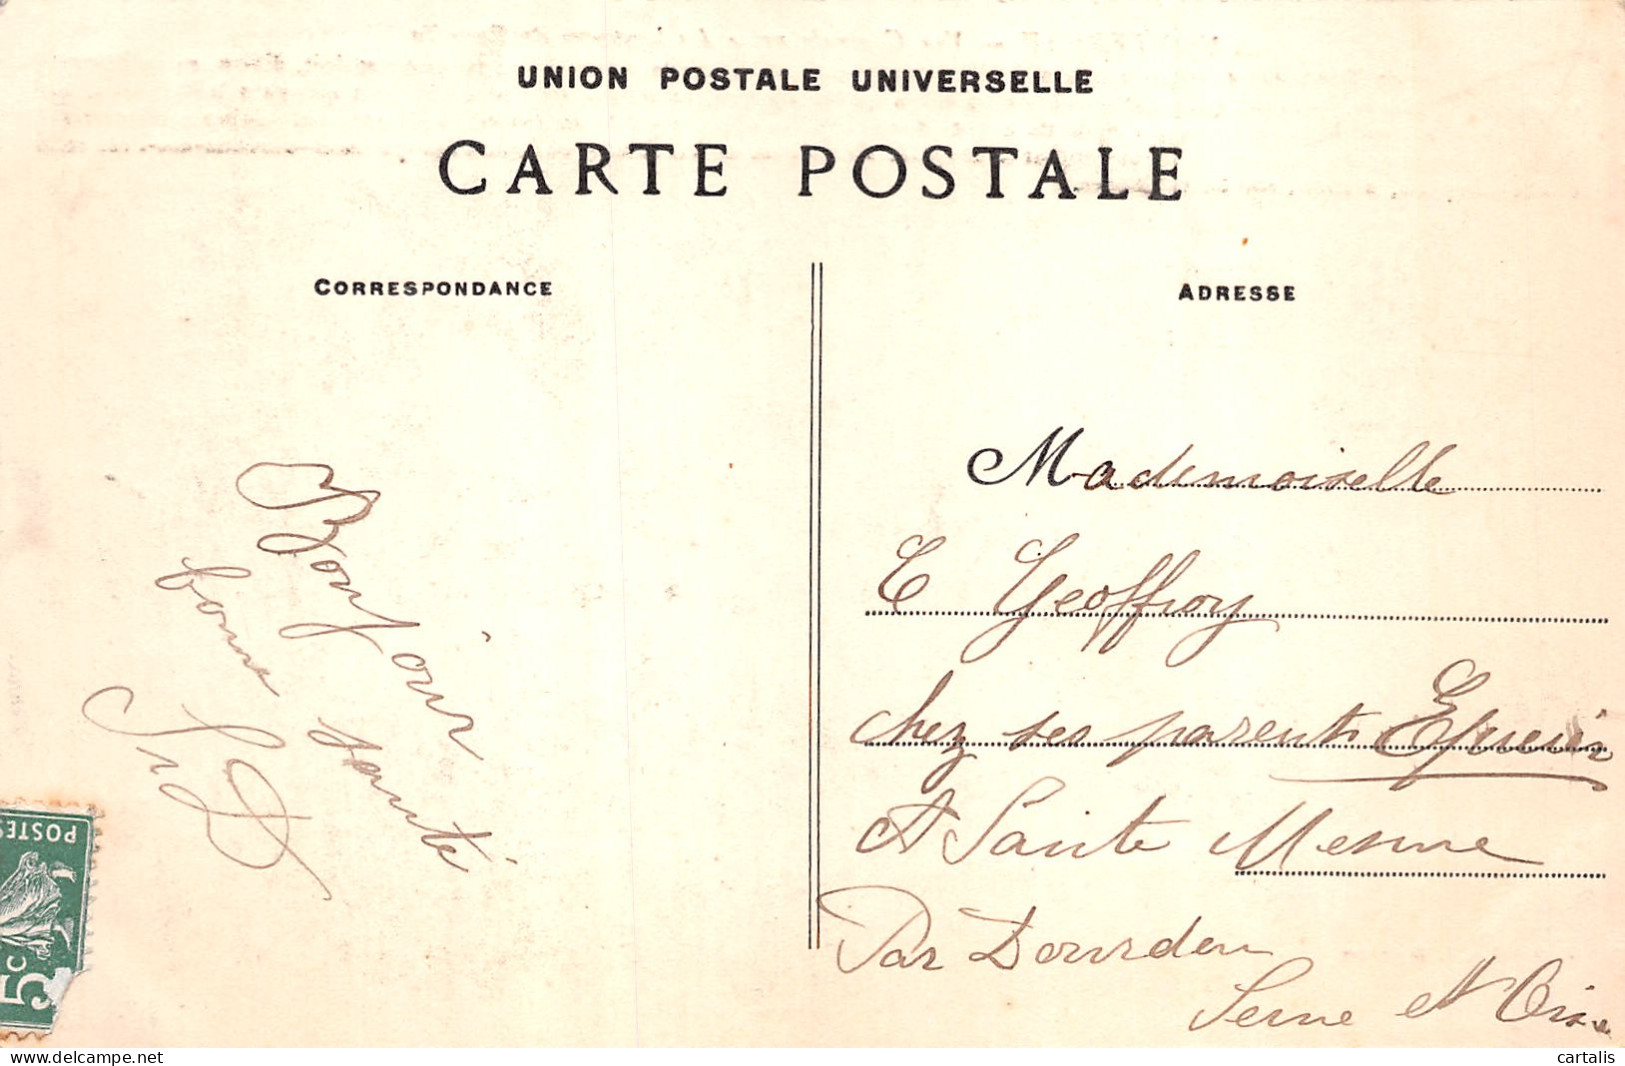 UNION POSTALE UNIVERSELLE
CARTE POSTALE
CORRESPONDANCE
ADRESSE
Bonjour
bonne santé
Mademoiselle
E Geoffroy
chez ses parents
A Sainte Mesme
Par Dourdan
Seine et Oise
POSTES
5c
cartalis